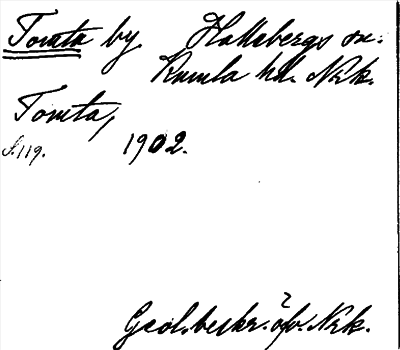 Tomta by Hallsbergs sn.
Kumla hd. Nrk.
Tomta,
s.119. 1902.
Geol. beskr. öfv. Nrk.